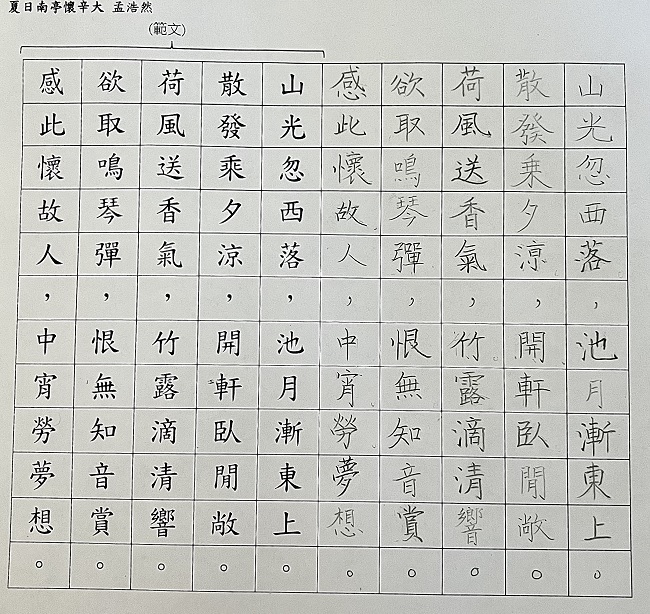 夏日南亭懷辛大 孟浩然
(範文)
山光忽西落,池月漸東上。
散發乘夕涼,開軒臥閒敞。
荷風送香氣,竹露滴清響。
欲取鳴琴彈,恨無知音賞。
感此懷故人,中宵勞夢想。
山光忽西落,池月漸東上。
散發乘夕涼,開軒臥閒敞。
荷風送香氣,竹露滴清響。
欲取鳴琴彈,恨無知音賞。
感此懷故人,中宵勞夢想。